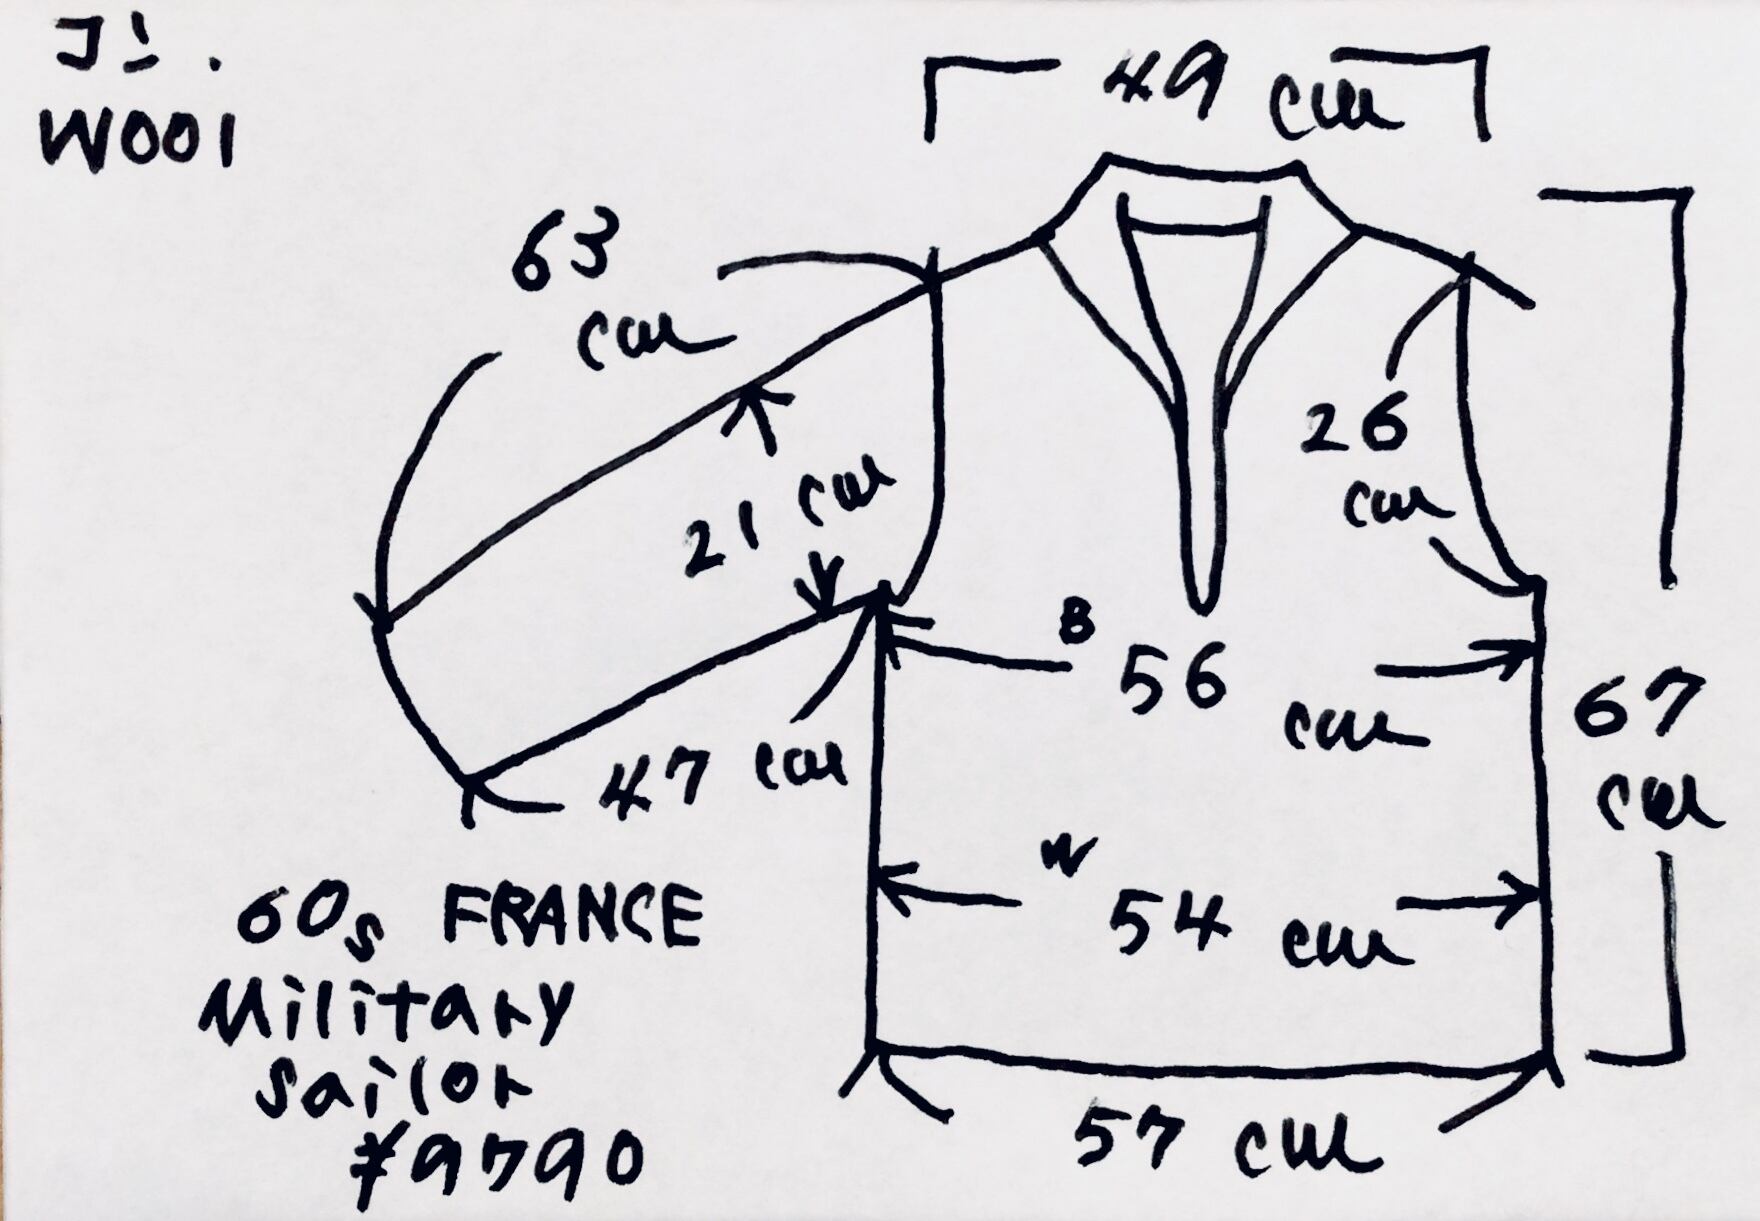 W001
49 cm
63
cm
26
cm
21 cm
B
56
cm
67
cm
47 cm
W
54 cm
60s FRANCE
Military
Sailor
¥9790
57 cm